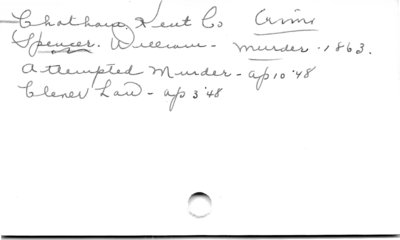 Chatham, Kent Co Crime
Spencer. William - murder - 1863.
Attempted Murder - ap 10 '48
Clener Law - ap 3 '48